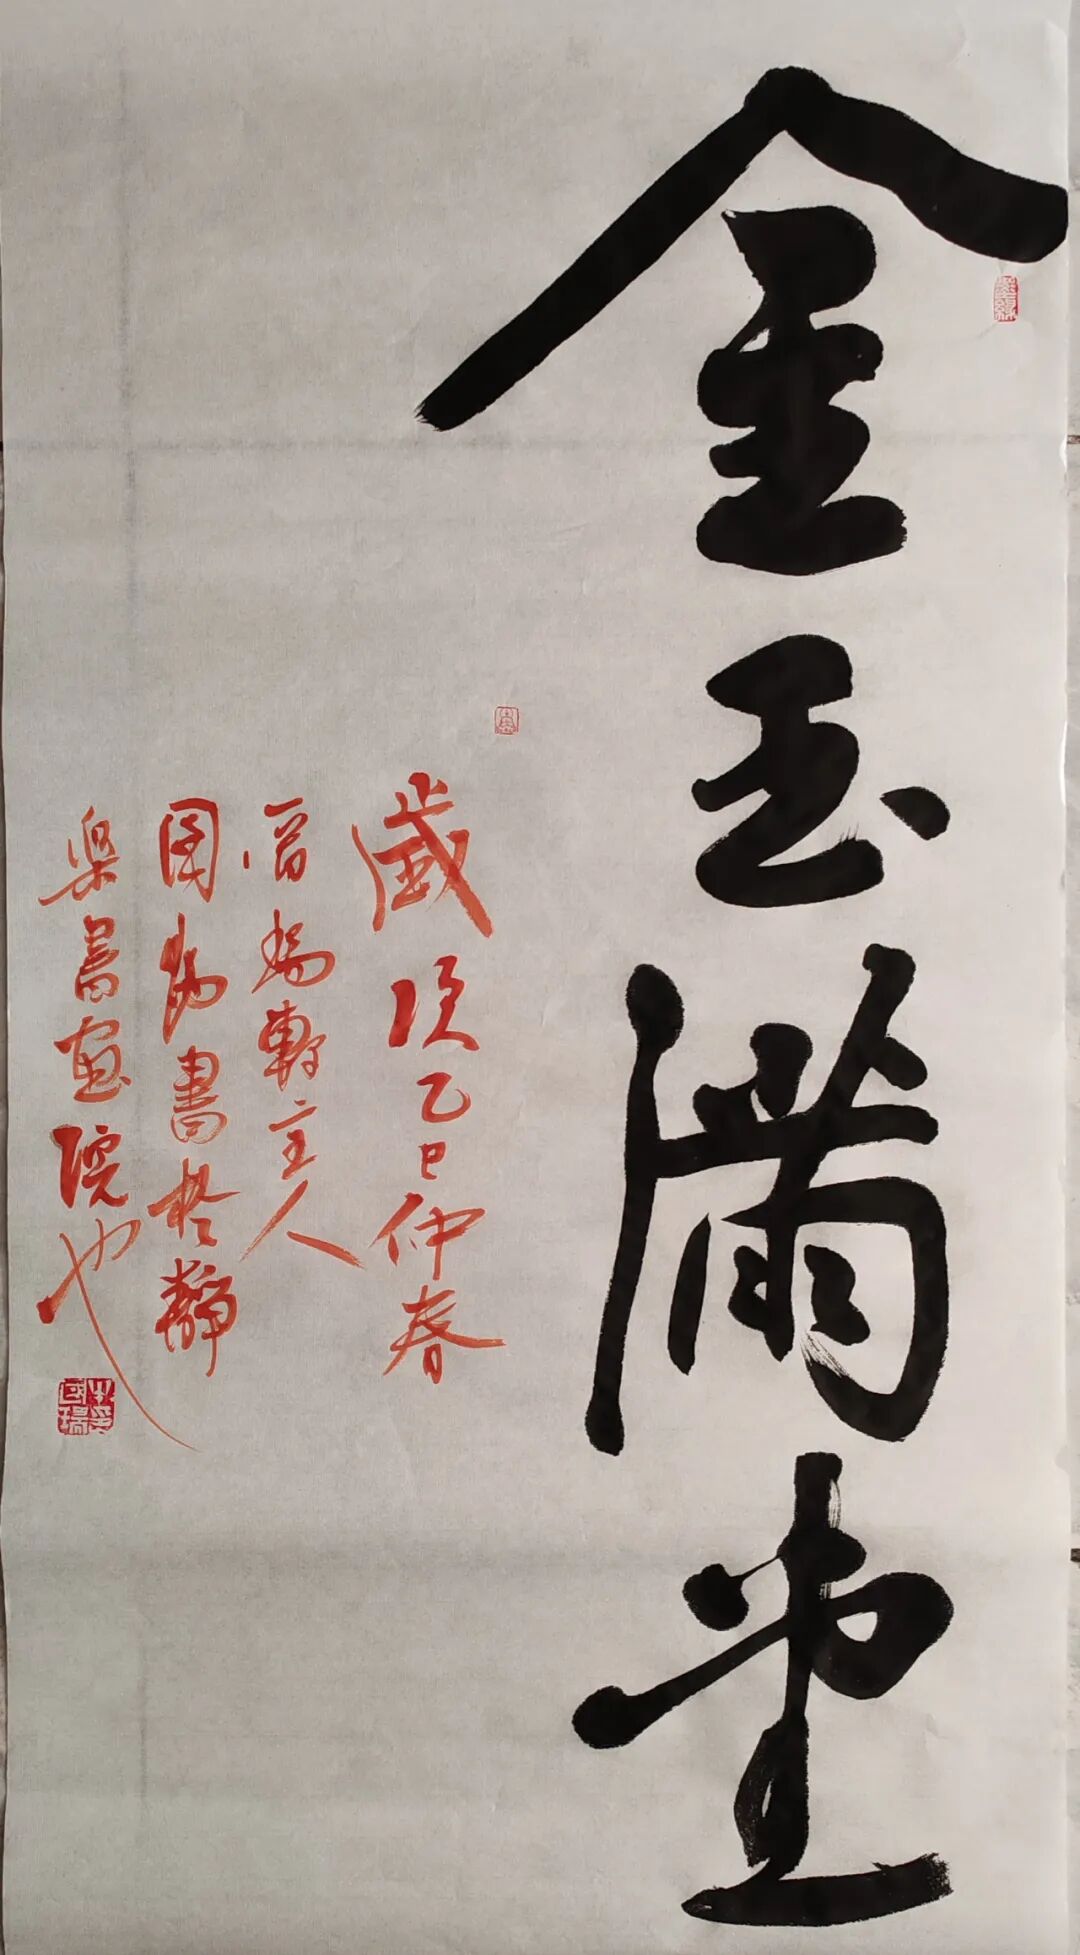 金玉满堂
歲次乙巳仲春
主人
國瑞書於靜
樂書畫院也